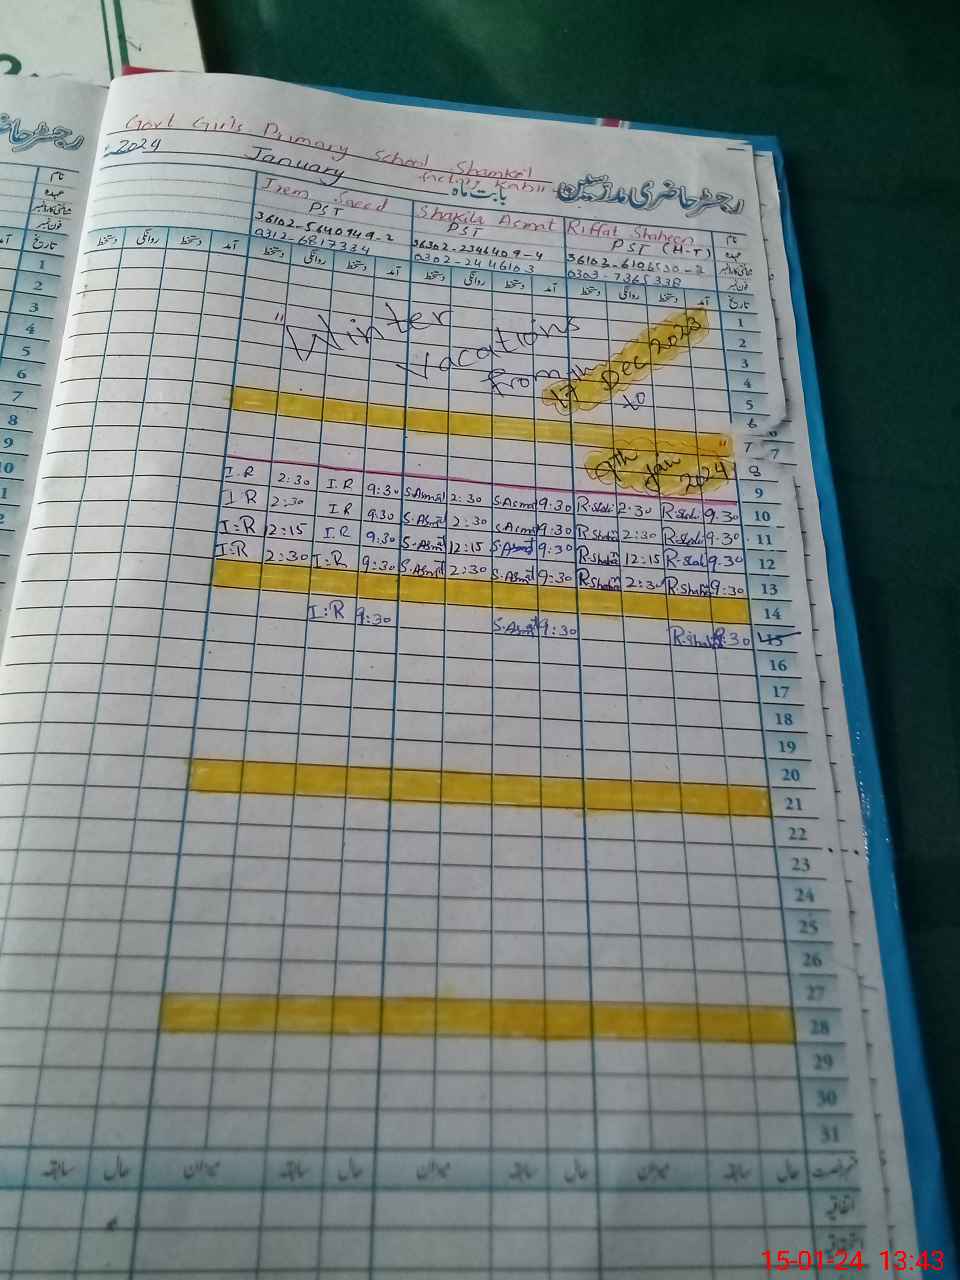 Govt Girls Primary School Shamkot
رجسٹر حاضری مدرسین
بابت ماہ January 2024
نام Riffat Shaheen Shakila Asmat Irem Saeed
عہدہ PST (H-T) PST PST
36103-6106530-2 36302-2346409-4 36102-5640949-2
فون نمبر 0303-7365338 0302-2446103 0312-6817334
تاریخ آمد دستخط روانگی دستخط آمد دستخط روانگی دستخط آمد دستخط روانگی دستخط آمد دستخط روانگی دستخط
1
2
3
4
5
6
7
8
"Winter
vacations
from 17th Dec 2023
to
9th Jan 2024"
9
I.R 2:30 I.R 9:30 S.Asmat 2:30 S.Asmat 9:30 R.Shah 2:30 R.Shah 9.30 10
I.R 2:30 I.R 9:30 S.Asmat 2:30 S.Asmat 9:30 R.Shah 2:30 R.Shah 9.30 11
I:R 12:15 I.R 9:30 S.Asmat 12:15 S.Asmat 9:30 R.Shah 12:15 R.Shah 9.30 12
I:R 2:30 I:R 9:30 S.Asmat 2:30 S.Asmat 9:30 R.Shah 2:30 R.Shah 9:30 13
14
I:R 9:30 S.Asmat 9:30 R.Shah 9:30 15
16
17
18
19
20
21
22
23
24
25
26
27
28
29
30
31
حال سابقہ میزان حال سابقہ میزان حال سابقہ میزان حال سابقہ
اتفاقیہ
15-01-24 13:43